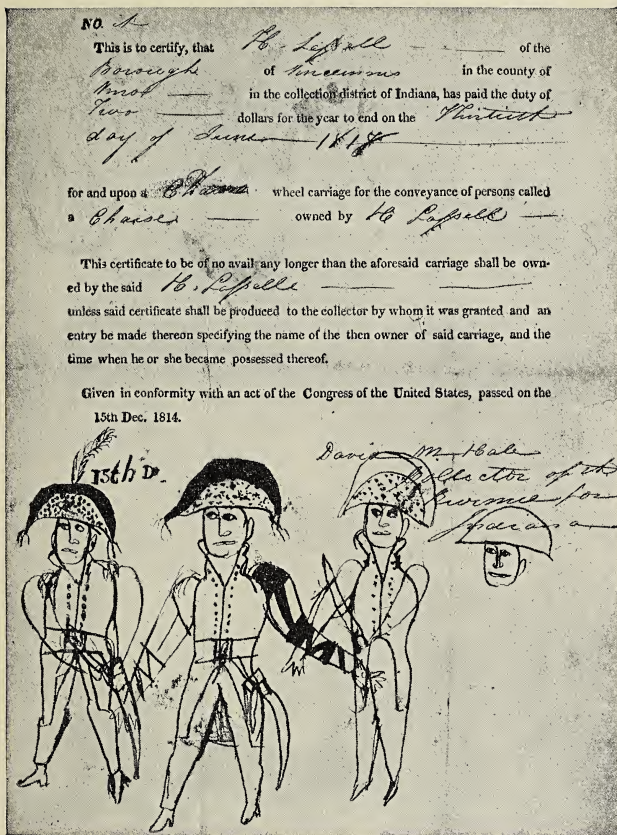 NO.
This is to certify, that H. Lasselle of the
Borough of Vincennes in the county of
Knox in the collection district of Indiana, has paid the duty of
Two dollars for the year to end on the Thirtieth
day of June 1817
for and upon a wheel carriage for the conveyance of persons called
a Chaise owned by H Lasselle
This certificate to be of no avail any longer than the aforesaid carriage shall be own-
ed by the said H. Lasselle
unless said certificate shall be produced to the collector by whom it was granted and an
entry be made thereon specifying the name of the then owner of said carriage, and the
time when he or she became possessed thereof.
Given in conformity with an act of the Congress of the United States, passed on the
15th Dec. 1814.
15th D.
David M. Hale
Collector of the
Revenue for
Indiana